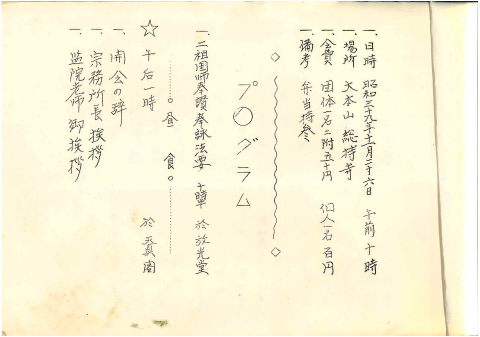 一、日時 昭和三十九年十一月二十六日 午前十時
一、場所 大本山 総持寺
一、会費 団体一名ニ附五十円 個人一名百円
一、備考 弁当持参
プログラム
一、二祖国師奉讃奉詠法要 十時半 於放光堂
昼食
☆ 午后一時 於 閣
一、開会の辞
一、宗務所長挨拶
一、監院老師御挨拶